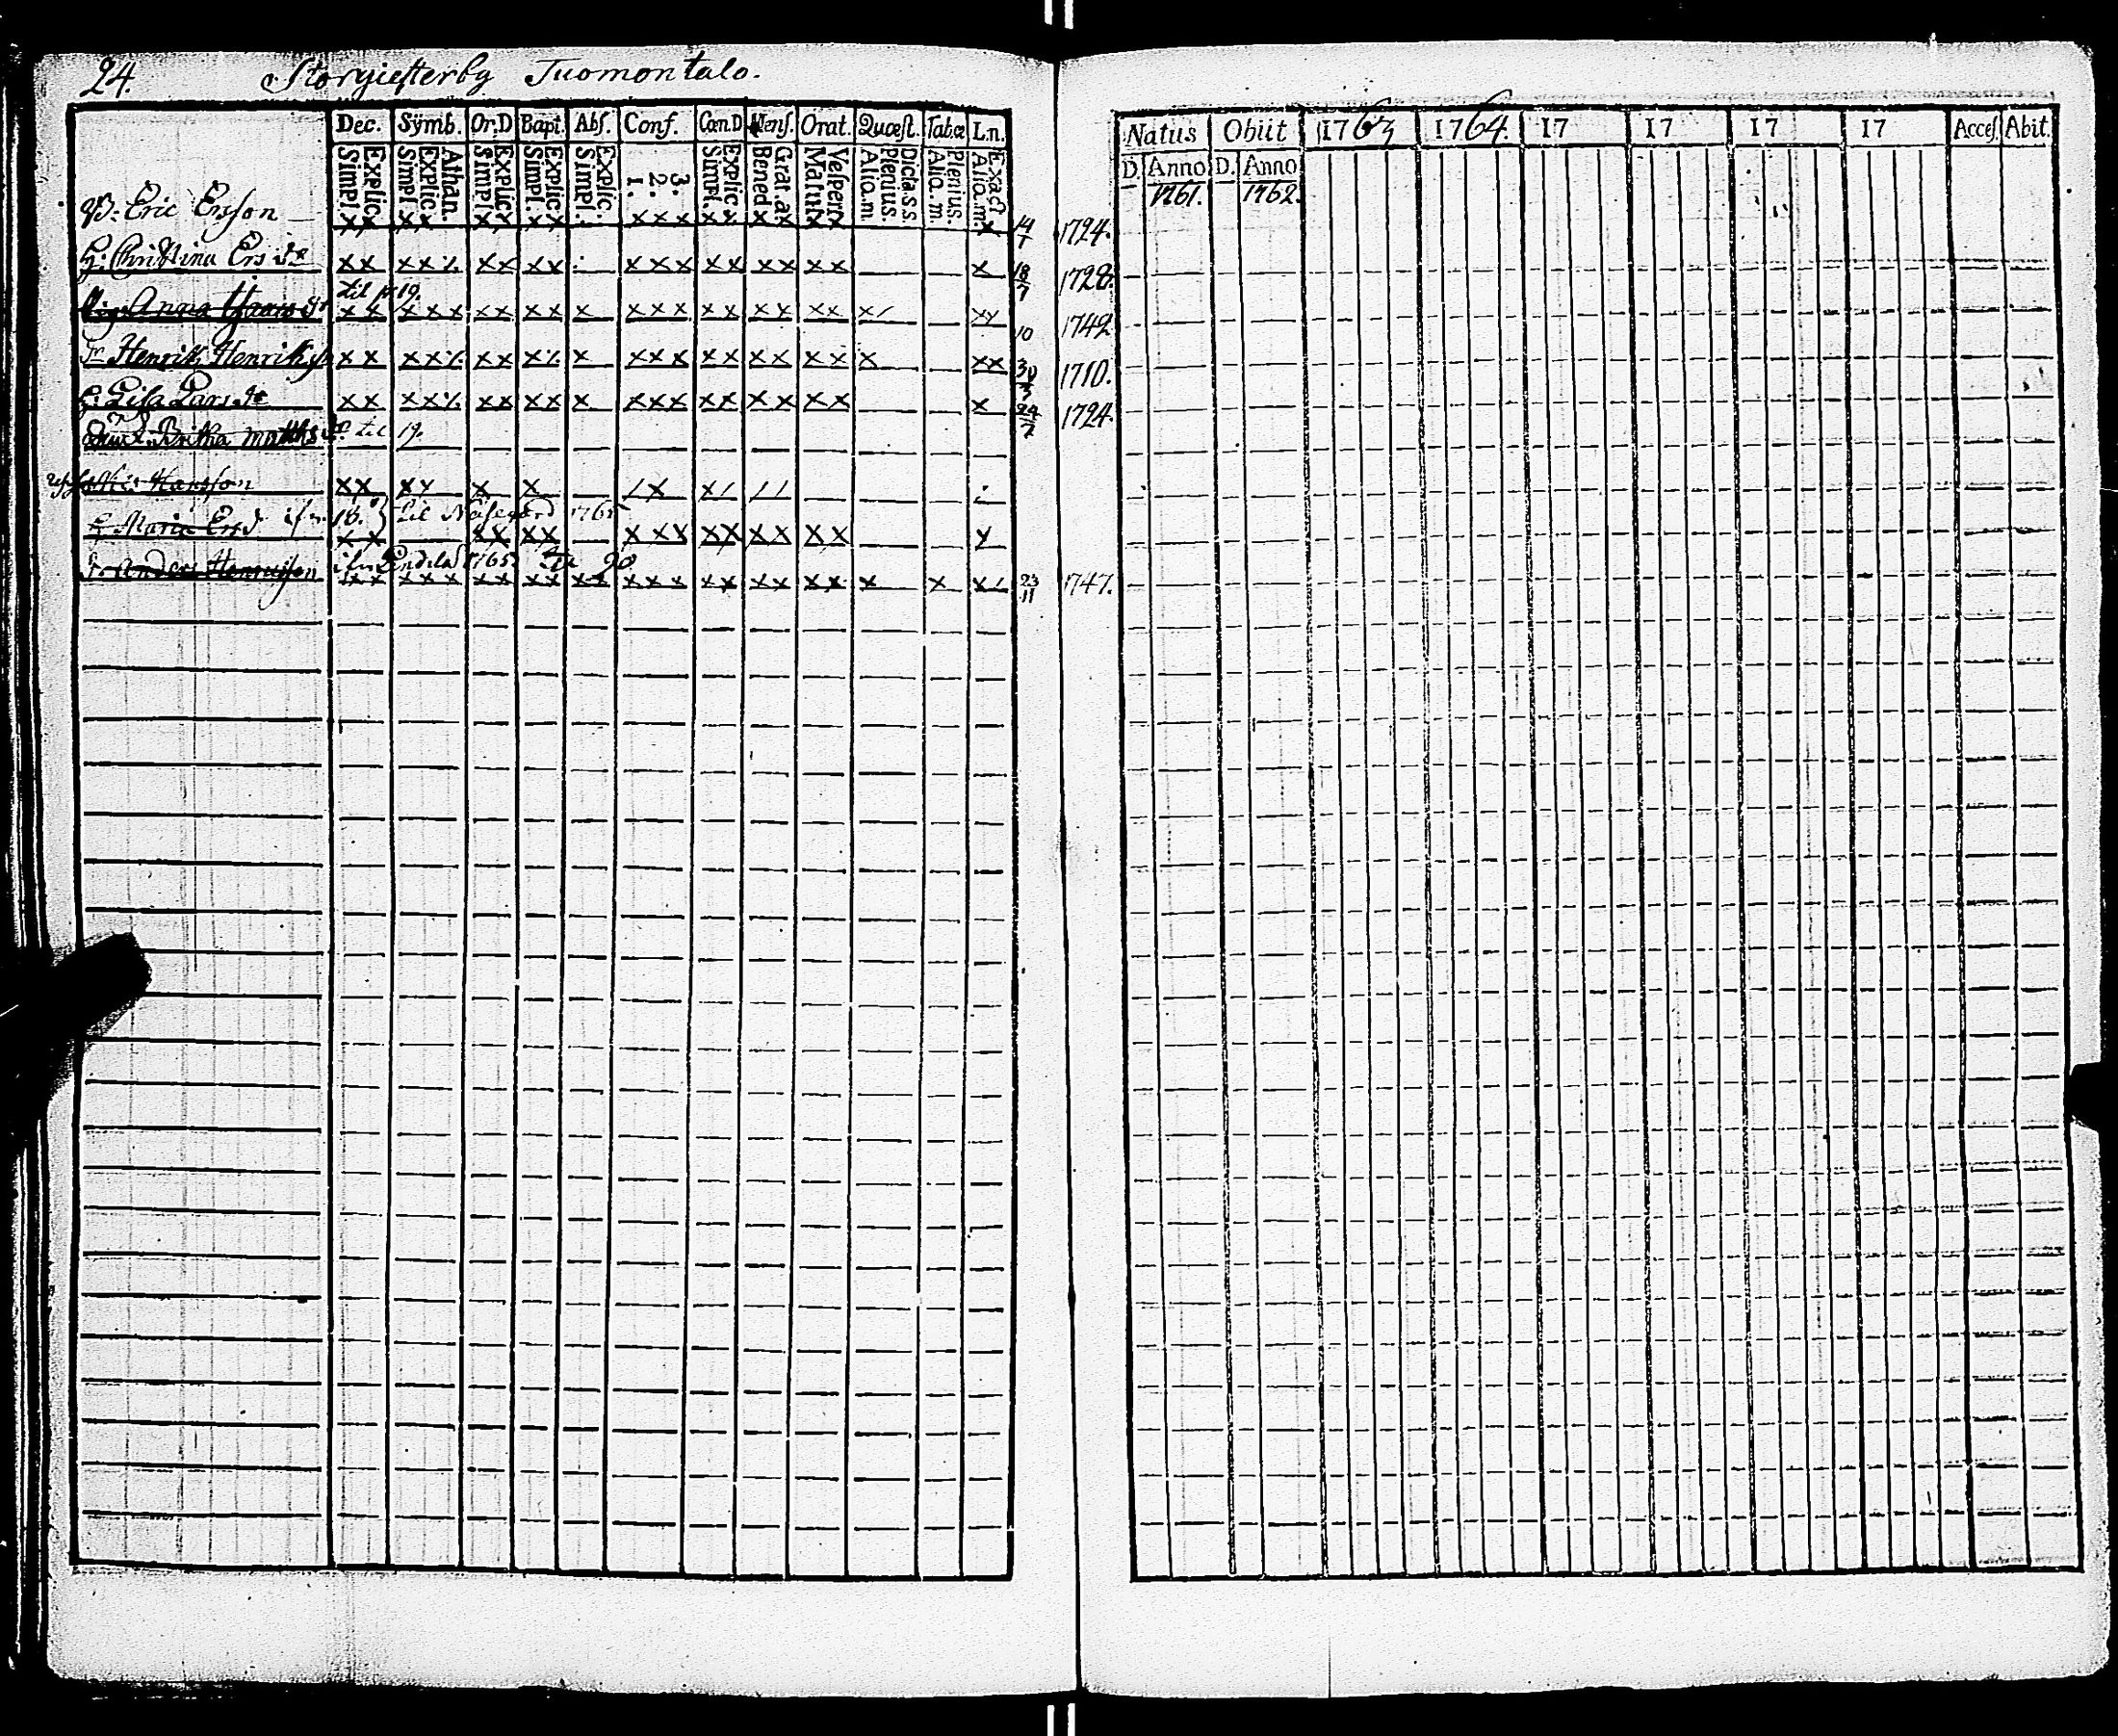 24. Storgiesterby Tuomontalo.
Dec. Symb. Or.D Bapt. Abſ. Conf. Cœn.D Menſ. Orat. Quœſt. Tab.œ L.n.
Simpl. Explic. Simpl. Explic. Athan. Simpl. Explic. Simpl. Explic. Simpl. Explic. 1. 2. 3. Simpl. Explic. Bened. Grat.a. Matut. Veſper. Alio.m. Plenius. Dicta.s.s. Alio.m. Plenius. Alio.m. Exact
Natus Obiit 1763 1764. 17 17 17 17 Acceſ. Abit.
D. Anno D. Anno
1761. 1762.
B: Eric Ersson x x x x x x x x x x x x x x x x x x 14/7 1724.
H: Christina Ers dr x x x x ⁒ x x x x x x x x x x x x x x 18/7 1728.
til 19.
Anna x x x x x x x x x x x x x x x x x x x x 10 1742
Henrik Henrikss x x x x ⁒ x x x ⁒ x x x x x x x x x x x x x 30/3 1710.
H: Lisa Lars dr x x x x ⁒ x x x x x x x x x x x x x x x 24/7 1724.
Britha Matths dr til 19.
Hansson x x x x x x / x x / / /
H Maria Ers d. 18. til 1765
x x x x x x x x x x x x x x x
Anders Henricsson 1765 til 90
x x x x x x x x x x x x x x x x x x x x x x x 23/11 1747.